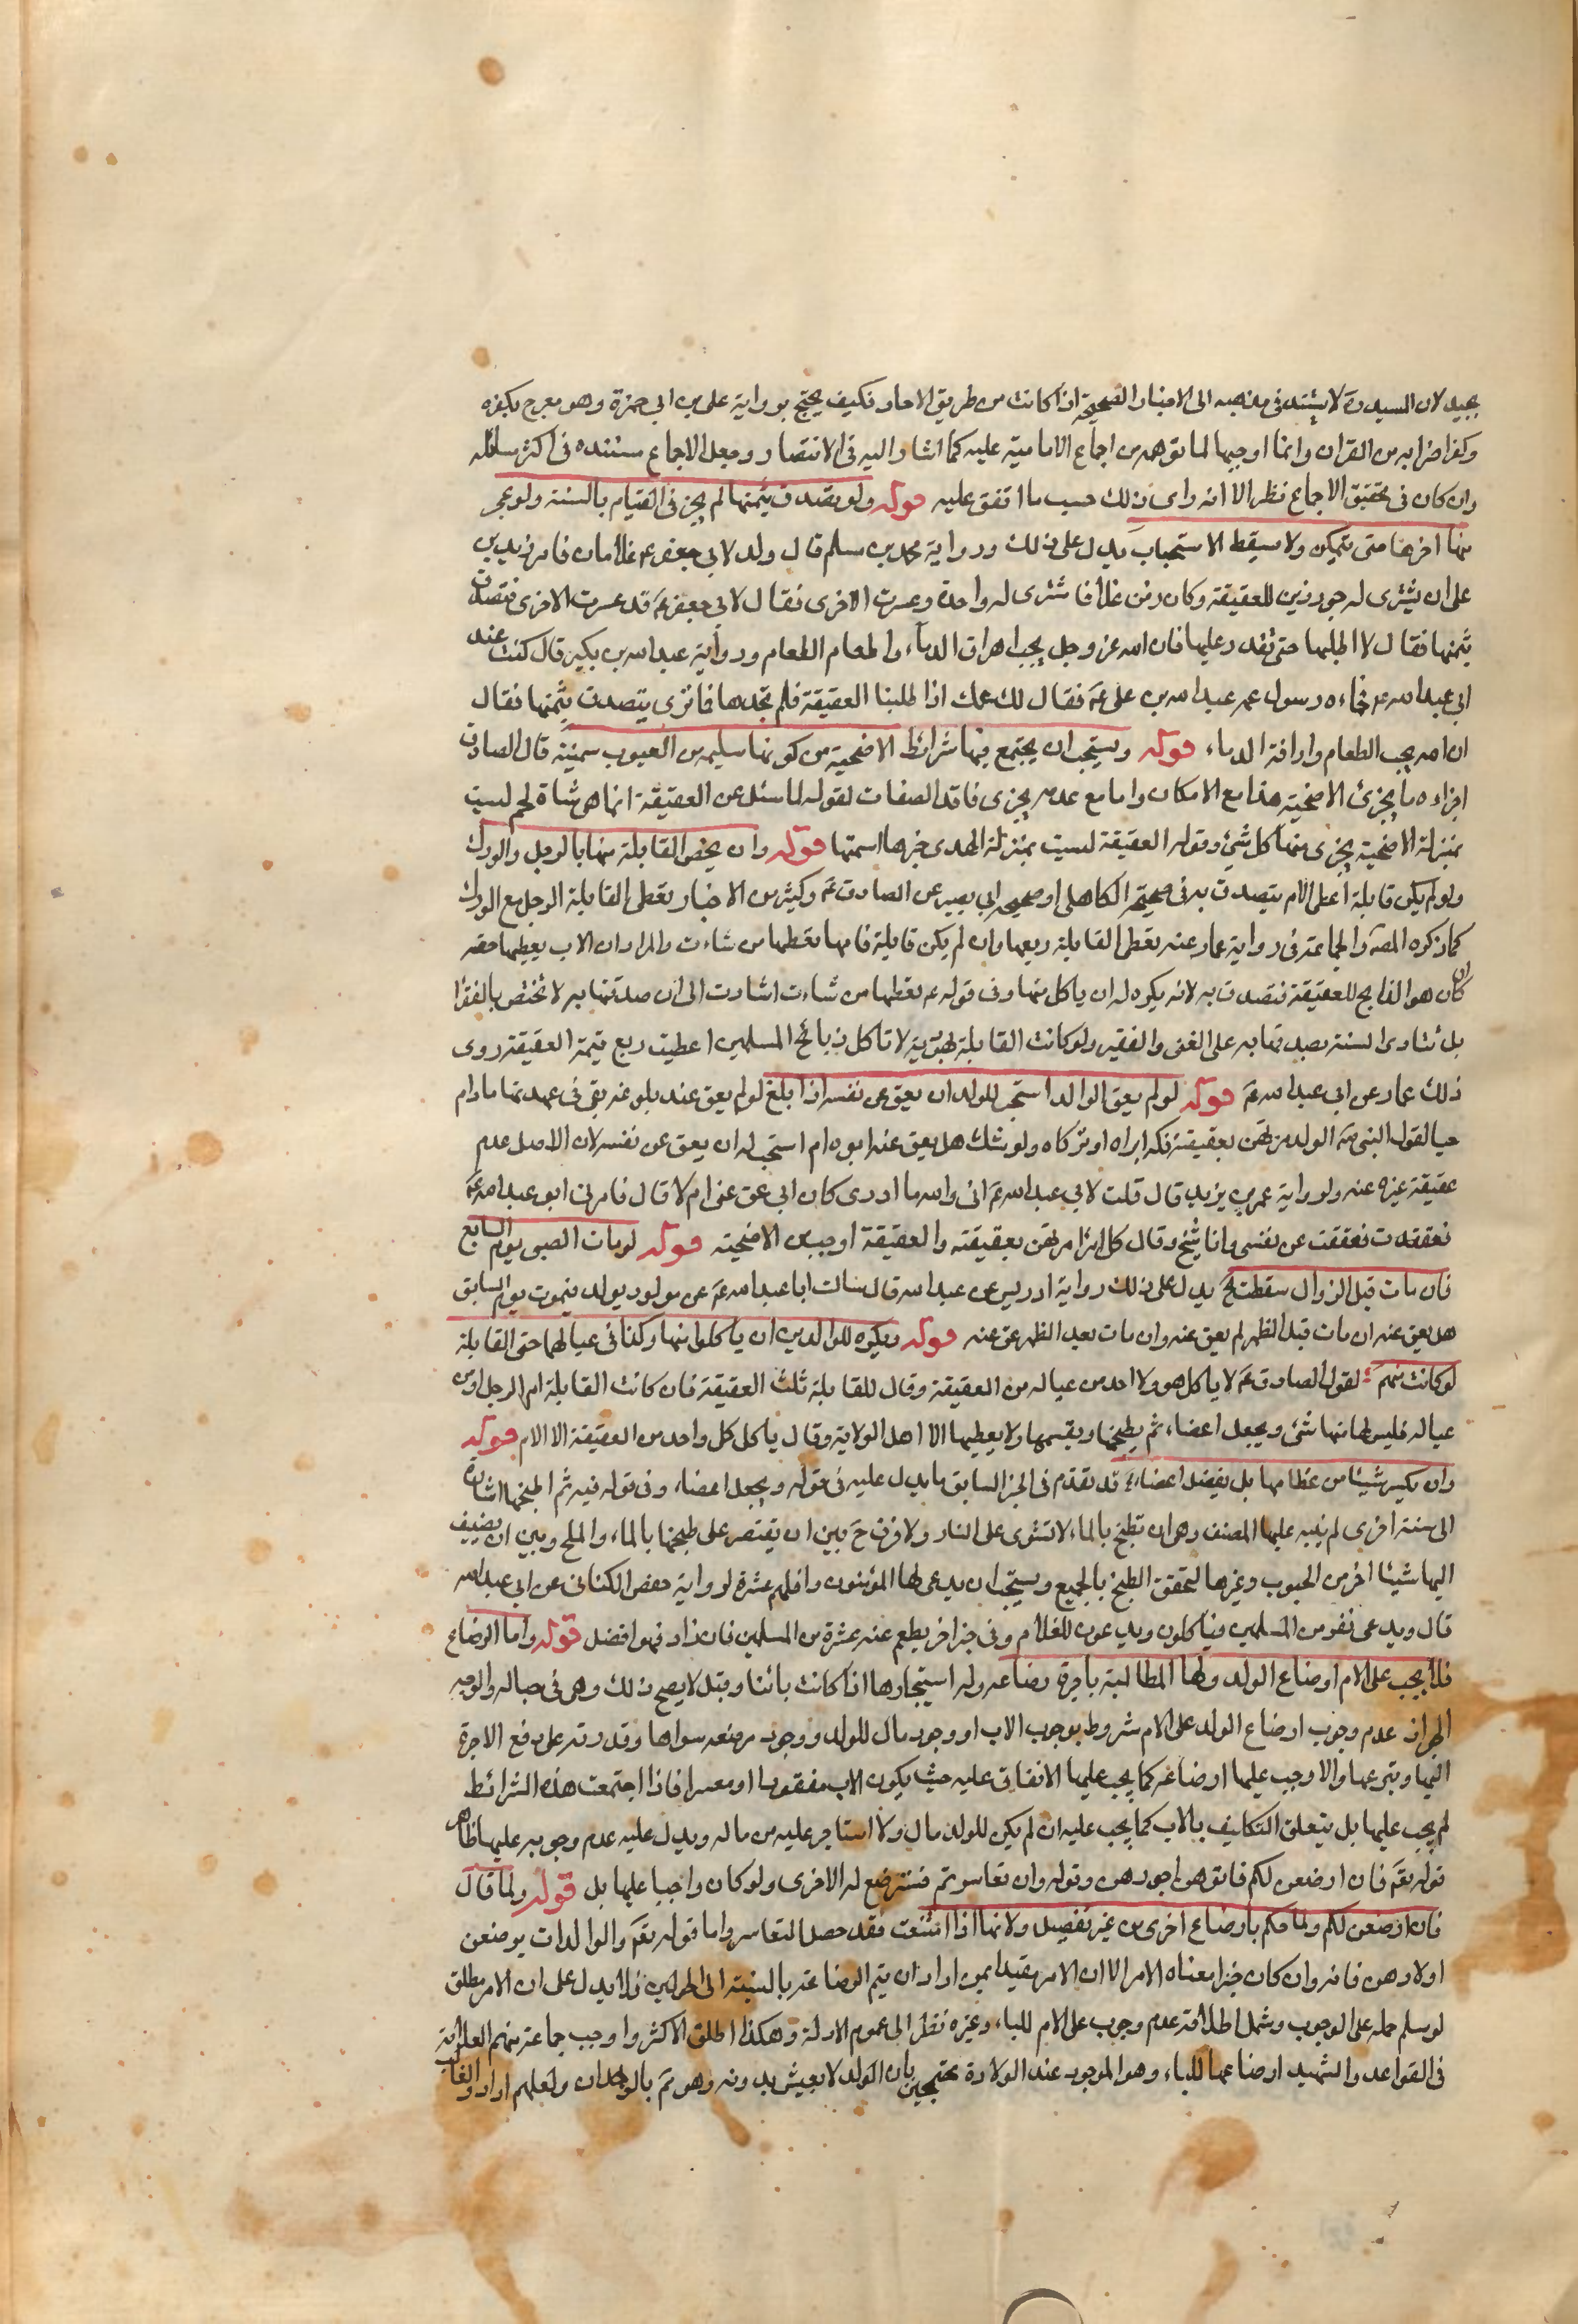 بجيد لان السيد ره لا يستند في مذهبه الى الاخبار الصحيحة اذا كانت من طريق الاحاد فكيف يحتج برواية علي بن ابي حمزة وهو مصرح بكفره
وكفر اضرابه من القران وانما اوجبها لما توهمه من اجماع الامامية عليه كما اشار اليه في الانتصار وجعل الاجماع مستنده في اكثر مسائله
وان كان في تحقيق الاجماع نظر الا انه راى ذلك حسب ما اتفق عليه قوله ولو تصدق بثمنها لم يجز في القيام بالسنة ولو عجز
عنها اخرها حتى يتمكن ولا يسقط الاستحباب يدل على ذلك ورواية محمد بن مسلم قال ولد لابي جعفر ع غلامان فامر زيد بن
على ان يشترى له جزورين للعقيقة وكان زمن غلا فاشترى له واحدة وعسرت الاخرى فقال لابي جعفر ع قد عسرت الاخرى فتصدق
بثمنها فقال لا اطلبها حتى تقدر عليها فان الله عز وجل يحب اهراق الدماء واطعام الطعام ورواية عبد الله بن بكير قال كنت عند
ابي عبد الله ع فجاءه رسول عمه عبد الله بن علي ع فقال لك عمك اذا طلبنا العقيقة فلم نجدها فما ترى يتصدق بثمنها فقال
ان الله يحب الطعام واراقة الدماء قوله ويستحب ان يجتمع فيها شرائط الاضحية من كونها سليمة من العيوب سمينة قال الصادق
اجزاءه ما يجزئ الاضحية هذا مع الامكان واما مع عدمه يجزى فاقد الصفات لقوله لما سئل عن العقيقة انما هى شاة لحم ليست
بمنزلة الاضحية يجزى منها كل شئ وقوله العقيقة ليست بمنزلة الهدى خيرها اسمنها قوله وان يخص القابلة منها بالرجل والورك
ولو لم يكن قابلة اعطى الام يتصدق به في صحيحة الكاهلي او صحيحة ابي بصير عن الصادق ع وكثير من الاخبار يعطى القابلة الرجل مع الورك
كما ذكره المصنف والجماعة وفي رواية عمار عنه يعطى القابلة ربعها وان لم يكن قابلة فامها تعطيها من شاءت والمراد ان الاب يعطيها حقه
ان كان هو الذابح للعقيقة فتصدق به لانه يكره له ان ياكل منها وفي قوله ع تعطيها من شاءت اشارت الى ان صدقتها به لا تختص بالفقرا
بل تتادى السنة بصدقتها به على الغنى والفقير ولو كانت القابلة يهودية لا تاكل ذبائح المسلمين اعطيت ربع قيمة العقيقة روى
ذلك عمار عن ابي عبد الله ع قوله لو لم يعق الوالد استحب للولد ان يعق عن نفسه اذا بلغ لو لم يعق عند بلوغه بقى في عهدتها ما دام
حيا لقول النبى ص الولد مرتهن بعقيقته فكه ابواه او تركاه ولو شك هل يعق عنه ابوه ام استحب له ان يعق عن نفسه لان الاصل عدم
عقيقة غيره عنه ولرواية عمر بن يزيد قال قلت لابي عبد الله ع انى والله ما ادرى كان ابي عق عنى ام لا قال فامرنى ابو عبد الله ع
فعققت عن نفسى وانا شيخ وقال كل امرئ مرتهن بعقيقته والعقيقة اوجب من الاضحية قوله لو مات الصبى يوم السابع
فان مات قبل الزوال سقطت الخ يدل على ذلك رواية ادريس بن عبد الله قال سالت ابا عبد الله ع عن مولود يولد فيموت يوم السابع
هل يعق عنه ان مات قبل الظهر لم يعق عنه وان مات بعد الظهر عق عنه قوله ويكره للوالدين ان ياكلوا منها وكذا في عيالهما حتى القابلة
لو كانت منهم لقول الصادق ع لا ياكل هو ولا احد من عياله من العقيقة وقال للقابلة ثلث العقيقة فان كانت القابلة ام الرجل او من
عياله فليس لها منها شئ ويجعل اعضاء ثم يطبخها ويقسمها ولا يعطيها الا اهل الولاية وقال ياكل كل واحد من العقيقة الا الام قوله
وان يكسر شيئا من عظامها بل يفصل اعضاء قد تقدم في الخبر السابق ما يدل عليه في قوله ويجعل اعضاء وفي قوله فيه ثم اطبخها اشارة
الى سنة اخرى لم ينبه عليها المصنف وهى ان تطبخ بالماء لا تشوى على النار ولا فرق ح بين ان يقتصر على طبخها بالماء والملح وبين ان يضيف
اليها شيئا اخر من الحبوب وغيرها لتحقق الطبخ بالجميع ويستحب ان يدعى لها المؤمنون واقلهم عشرة لرواية حفص الكناسى عن ابي عبد الله
قال ويدعى نفر من المسلمين فياكلون ويدعون للغلام وفي خبر اخر يطعم عنه عشرة من المسلمين فان زاد فهو افضل قوله واما الرضاع
فلا يجب على الام ارضاع الولد ولها المطالبة باجرة رضاعه وله استيجارها اذا كانت بائنا وقيل لا يصح ذلك وهى في حباله والوجه
الجواز عدم وجوب ارضاع الولد على الام مشروط بوجود الاب او وجود مال للولد ووجود مرضعه سواها وقدرته على دفع الاجرة
اليها وتبرعها والا وجب عليها ارضاعه كما يجب عليها الانفاق عليه حيث يكون الاب مفقودا او معسرا فاذا اجتمعت هذه الشرائط
لم يجب عليها بل يتعلق التكليف بالاب كما يجب عليه ان لم يكن للولد مال ولا استاجر عليه من ماله ويدل عليه عدم وجوبه عليها ظاهر
قوله تعالى فان ارضعن لكم فاتوهن اجورهن وقوله وان تعاسرتم فسترضع له الاخرى ولو كان واجبا عليها بل قوله ولما قال
فان ارضعن لكم ولما حكم بارضاع اخرى من غير تفصيل ولانها اذا امتنعت فقد حصل التعاسر واما قوله تعالى والوالدات يرضعن
اولادهن فانه وان كان خبرا معناه الامر الا ان الامر مقيد لمن اراد ان يتم الرضاعة بالنسبة الى الحولين فلا يدل على ان الامر مطلق
لو سلم حمله على الوجوب وشمل اطلاقه عدم وجوب على الام للباء وغيره نظرا الى عموم الادلة وهكذا اطلق الاكثر واوجب جماعة منهم العلامة
في القواعد والشهيد ارضاعها اللباء وهو الموجود عند الولادة محتجين بان الولد لا يعيش بدونه وهو ثم بالوجدان ولعلهم ارادوا الغالب